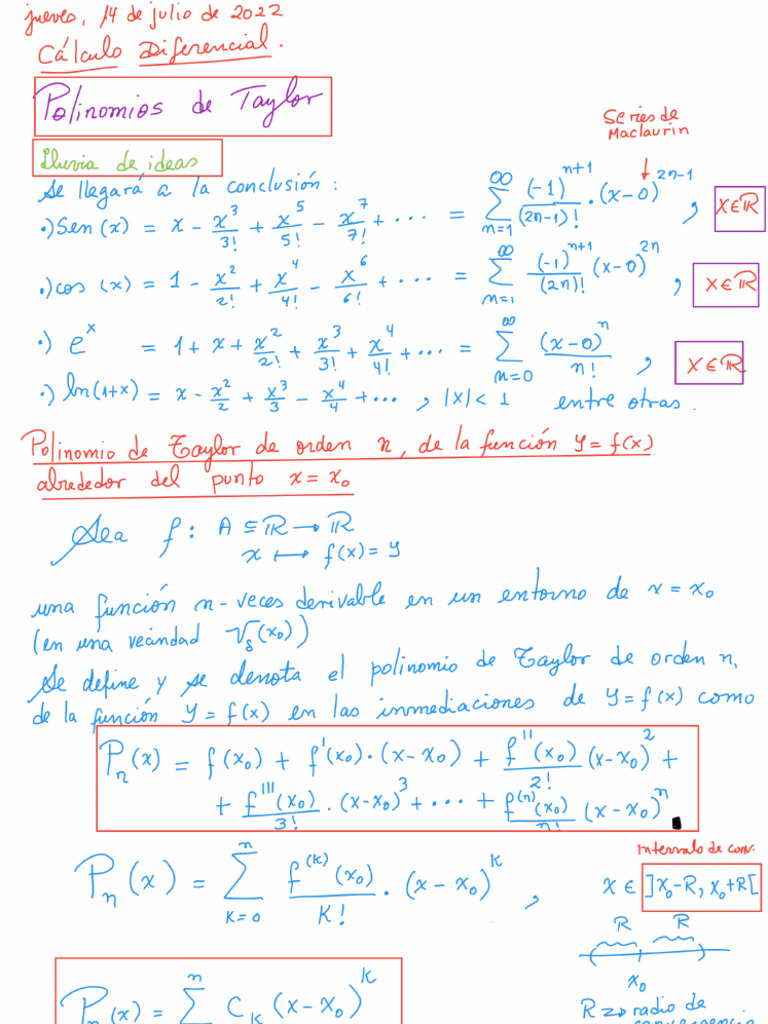 jueves, 14 de julio de 2022
Cálculo Diferencial.
Polinomios de Taylor
Series de
Maclaurin
Lluvia de ideas
Se llegará a la conclusión:
•) Sen(x) = x - x³/3! + x⁵/5! - x⁷/7! + ... = ∑_{n=1}^{∞} (-1)^{n+1}/(2n-1)! · (x-0)^{2n-1}, x∈ℝ
•) cos(x) = 1 - x²/2! + x⁴/4! - x⁶/6! + ... = ∑_{n=1}^{∞} (-1)^{n+1}/(2n)! (x-0)^{2n}, x∈ℝ
•) e^x = 1 + x + x²/2! + x³/3! + x⁴/4! + ... = ∑_{n=0}^{∞} (x-0)^n/n!, x∈ℝ
•) ln(1+x) = x - x²/2 + x³/3 - x⁴/4 + ..., |x|<1 entre otras.
Polinomio de Taylor de orden n, de la función y=f(x)
alrededor del punto x=x₀
Sea f: A⊆ℝ→ℝ
x ↦ f(x)=y
una función n-veces derivable en un entorno de x=x₀
(en una vecindad V_δ(x₀))
Se define y se denota el polinomio de Taylor de orden n,
de la función y=f(x) en las inmediaciones de y=f(x) como
P_n(x) = f(x₀) + f'(x₀)·(x-x₀) + f''(x₀)/2! (x-x₀)² +
+ f'''(x₀)/3! · (x-x₀)³ + ... + f^{(n)}(x₀)/n! (x-x₀)^n
Intervalo de conv.
P_n(x) = ∑_{k=0}^{n} f^{(k)}(x₀)/k! · (x-x₀)^k, x∈ ]x₀-R, x₀+R[
R R
x₀
P_n(x) = ∑^{n} C_k (x-x₀)^k
R⇒radio de
convergencia